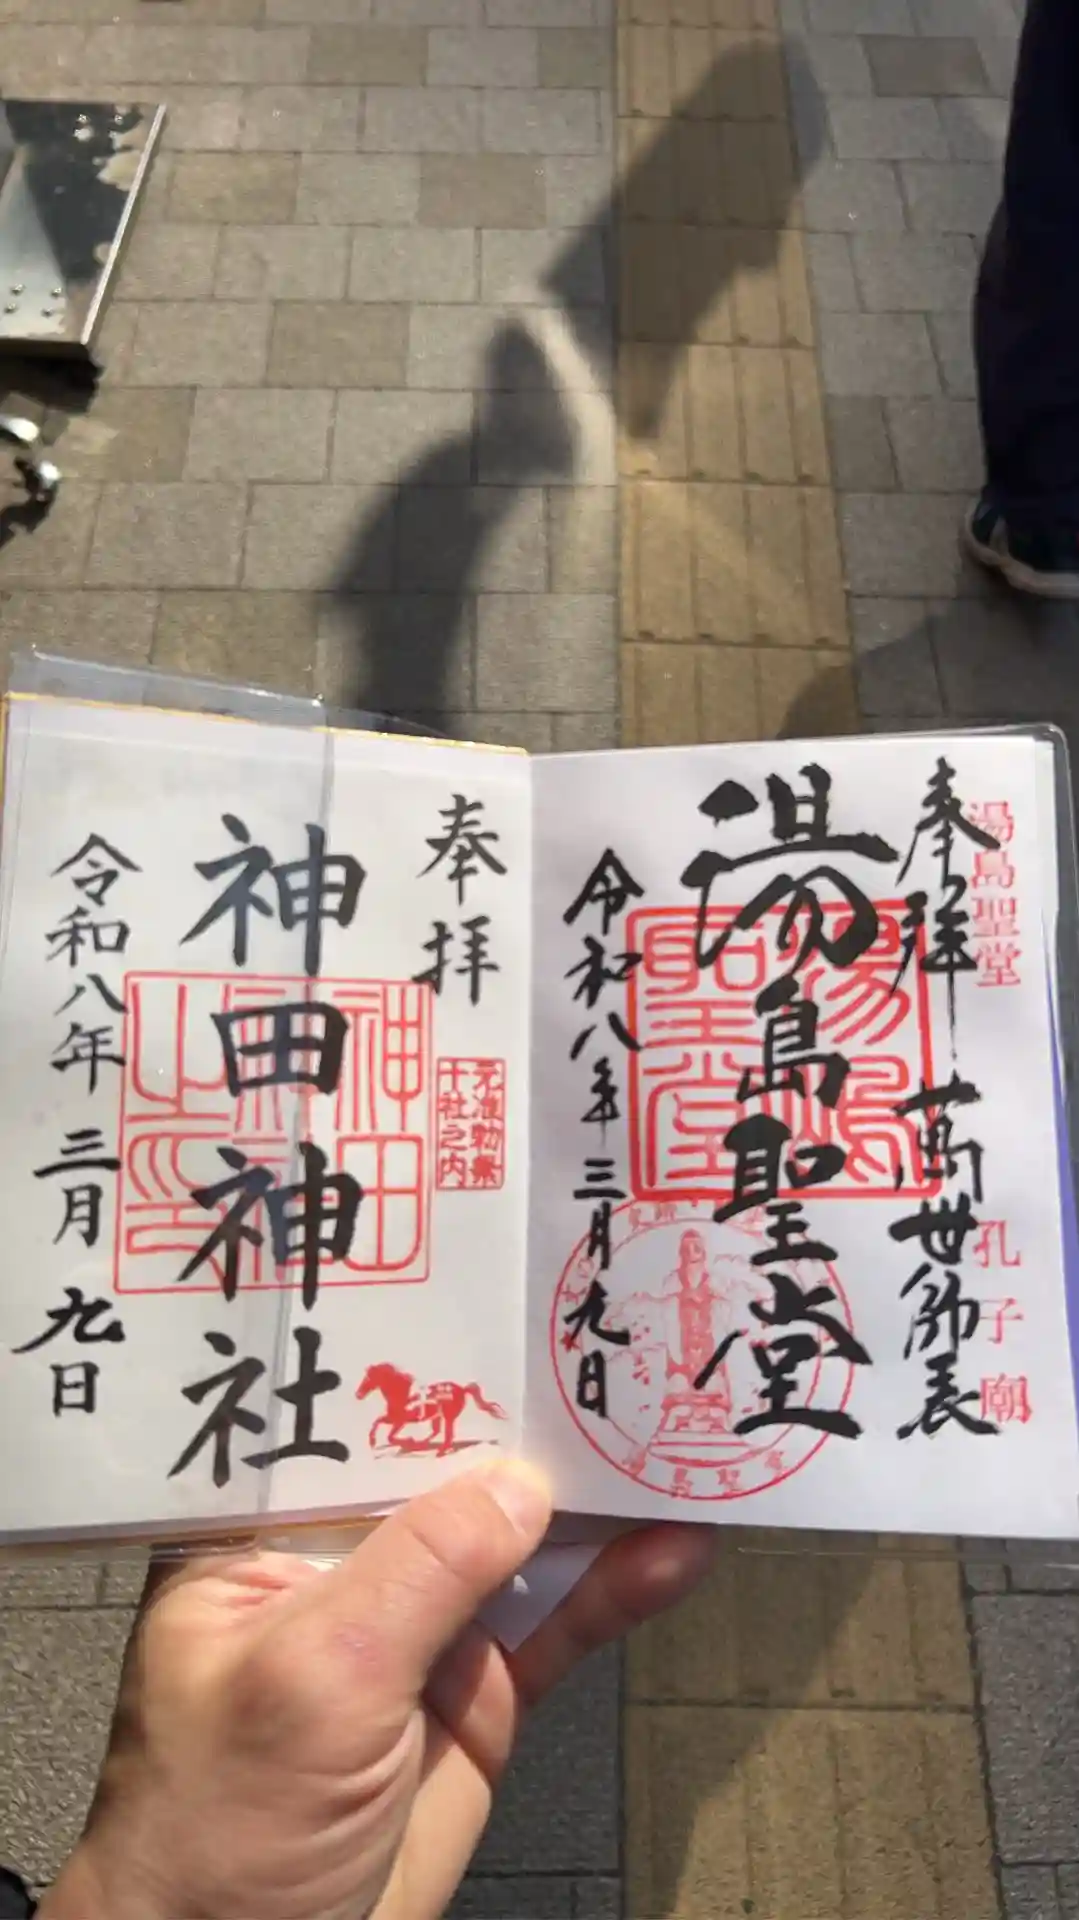 湯島聖堂
孔子廟
奉拝 萬世師表
湯島聖堂
湯島聖堂
湯島聖堂
令和八年三月九日
奉拝
元准勅祭
十社之内
神田神社
神田
神社
之印
令和八年三月九日